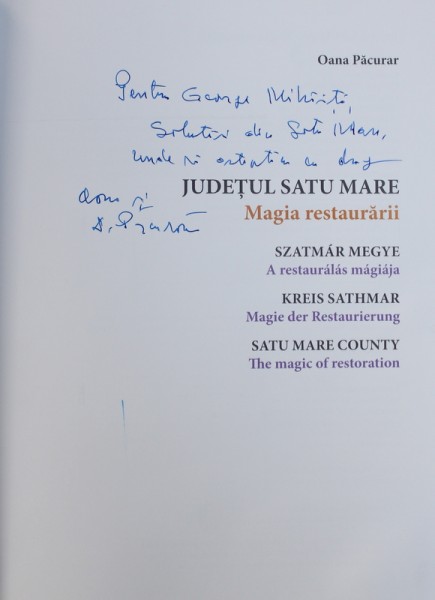 Oana Păcurar
Pentru George Mihăiță,
Salutări din Satu Mare,
unde vă așteptăm cu drag
Oana și
JUDEȚUL SATU MARE
Magia restaurării
SZATMÁR MEGYE
A restaurálás mágiája
KREIS SATHMAR
Magie der Restaurierung
SATU MARE COUNTY
The magic of restoration